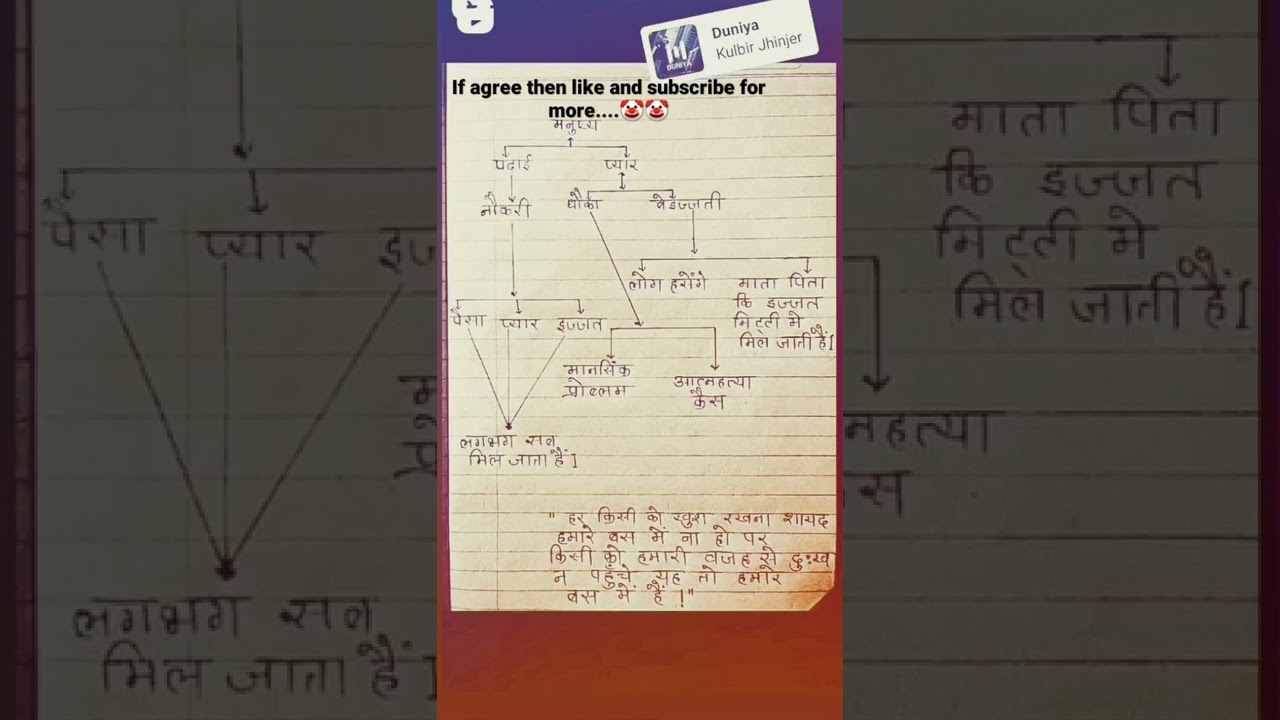 Duniya
Kulbir Jhinjer
DUNIYA
If agree then like and subscribe for
more....🤡🤡
मनुष्य
पढाई प्यार
नौकरी धौका बेइज्जती
लोग हसेंगे
माता पिता
कि इज्जत
मिट्ती मे
मिल जाती हैं।
पैसा प्यार इज्जत
मानसिक
प्रोब्लम
आत्महत्या
कैस
लगभग सब
मिल जाता हैं।
" हर किसी को खुश रखना शायद
हमारे बस में ना हो पर
किसी को हमारी वजह से दुःख
न पहुँचे यह तो हमारे
बस में हैं !"
माता पिता
कि इज्जत
मिट्ती मे
मिल जाती हैं।
पैसा प्यार
लगभग सब
मिल जाता हैं।